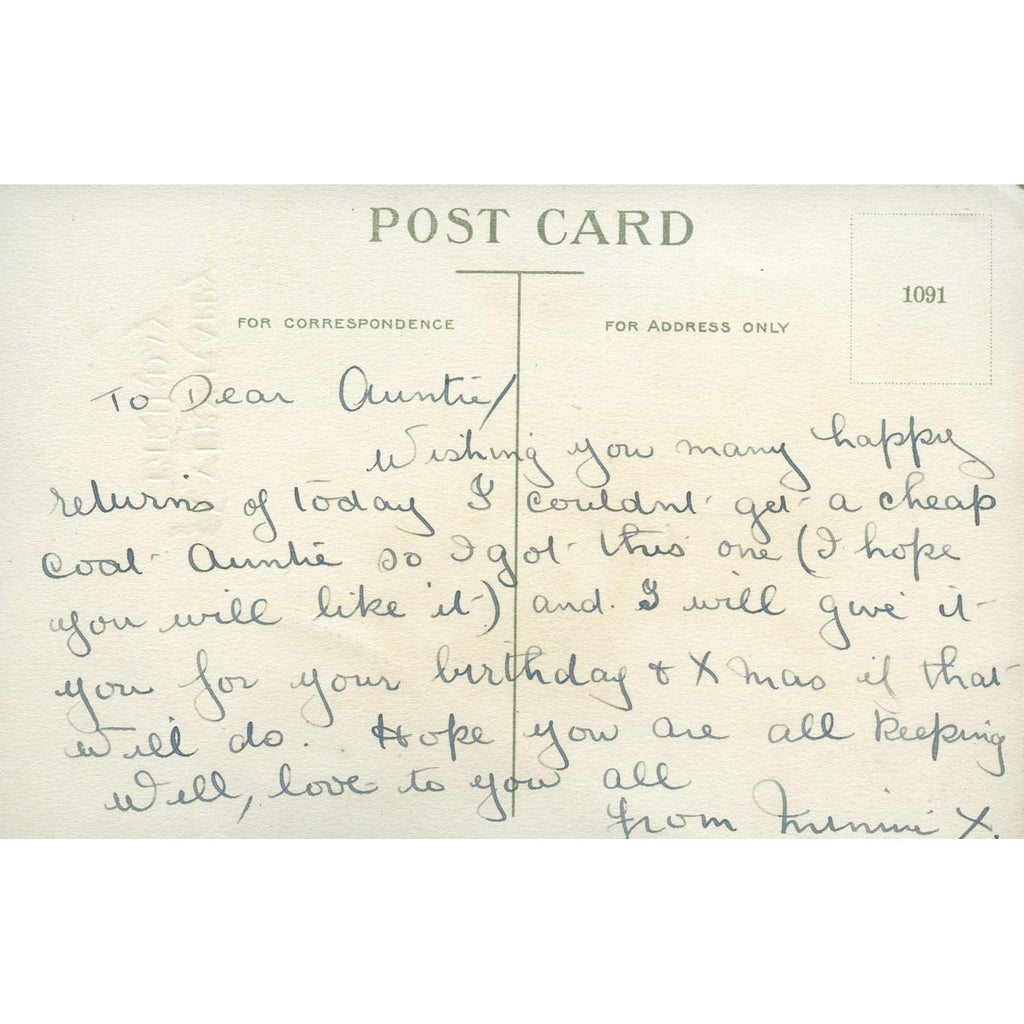 POST CARD
1091
FOR CORRESPONDENCE
FOR ADDRESS ONLY
To Dear Auntie/
Wishing you many happy
returns of today I couldnt get a cheap
coat Auntie so I got this one (I hope
you will like it) and. I will give it
you for your birthday & Xmas if that
will do. Hope you are all keeping
Well, love to you all
from Minnie X.